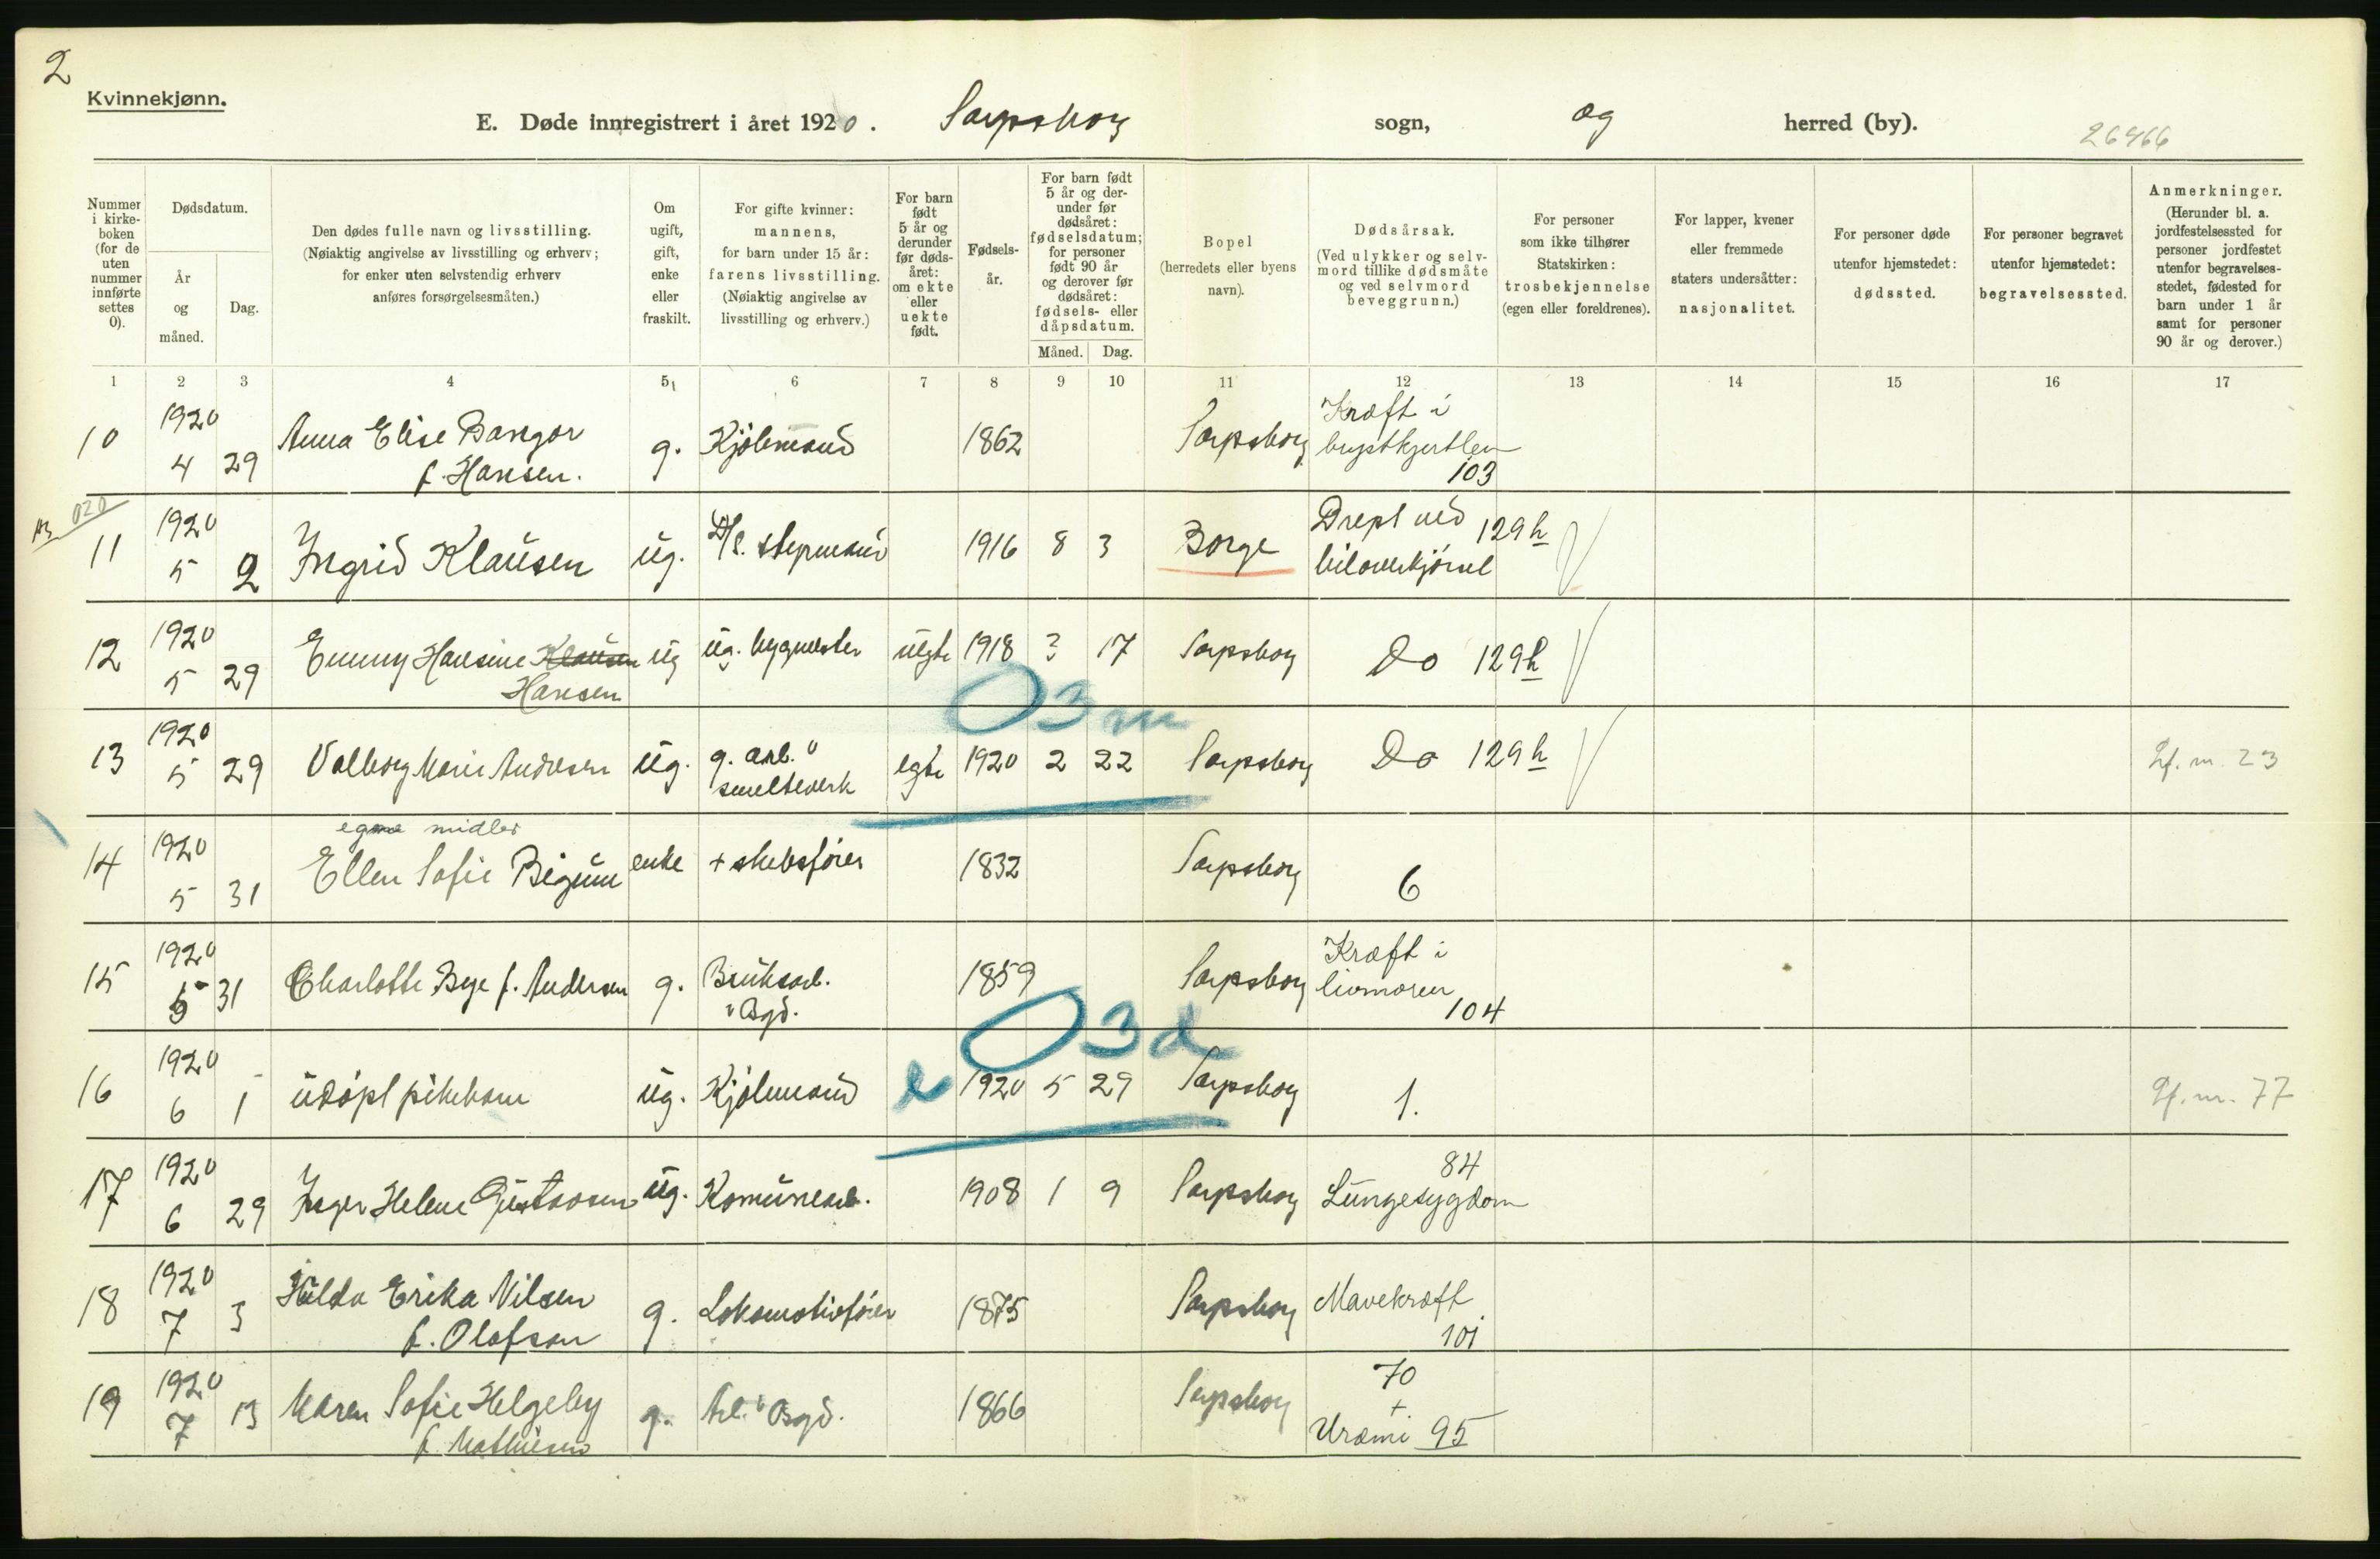 2
Kvinnekjønn.
E. Døde innregistrert i året 1920. Sarpsborg sogn, og herred (by).
26466
Nummer i kirke-boken (for de uten nummer innførte settes 0).
Dødsdatum.
År og måned.
Dag.
Den dødes fulle navn og livsstilling.
(Nøiaktig angivelse av livsstilling og erhverv; for enker uten selvstendig erhverv anføres forsørgelsesmåten.)
Om ugift, gift, enke eller fraskilt.
For gifte kvinner: mannens, for barn under 15 år: farens livsstilling.
(Nøiaktig angivelse av livsstilling og erhverv.)
For barn født 5 år og derunder før døds-året: om ekte eller uekte født.
Fødsels-år.
For barn født 5 år og der-under før dødsåret: fødselsdatum; for personer født 90 år og derover før dødsåret: fødsels- eller dåpsdatum.
Måned. Dag.
Bopel (herredets eller byens navn).
Dødsårsak.
(Ved ulykker og selv-mord tillike dødsmåte og ved selvmord beveggrunn.)
For personer som ikke tilhører Statskirken: trosbekjennelse (egen eller foreldrenes).
For lapper, kvener eller fremmede staters undersåtter: nasjonalitet.
For personer døde utenfor hjemstedet: dødssted.
For personer begravet utenfor hjemstedet: begravelsessted.
Anmerkninger.
(Herunder bl. a. jordfestelsessted for personer jordfestet utenfor begravelses-stedet, fødested for barn under 1 år samt for personer 90 år og derover.)
1 2 3 4 5 6 7 8 9 10 11 12 13 14 15 16 17
10 1920 4 29 Anna Elise Bangor f. Hansen. g. Kjøbmand 1862 Sarpsborg Kræft i brystkjertlen 103
020
11 1920 5 2 Ingrid Klausen ug. D/S. styrmand 1916 8 3 Borge Drept ved biloverkjørsel 129h
12 1920 5 29 Emmy Hansine Klausen Hansen ug ug. bygmester uegte 1918 3 17 Sarpsborg Do 129h
03 m
13 1920 5 29 Valborg Marie Andresen ug. g. arb. i smelteverk egte 1920 2 22 Sarpsborg Do 129h Lf. nr. 23
egne midler
14 1920 5 31 Ellen Sofie Bigum enke + skibsfører 1832 Sarpsborg 6
15 1920 5 31 Charlotte Bye f. Andersen g. Bruksarb. i Bgd. 1859 Sarpsborg Kræft i livmoren 104
03 d
16 1920 6 1 udøpt pikebarn ug. Kjøbmand e 1920 5 29 Sarpsborg 1. Lf. nr. 77
17 1920 6 29 Inger Helene Gustavsen ug. Komunearb. 1908 1 9 Sarpsborg 84 Lungesygdom
18 1920 7 3 Hulda Erika Nilsen f. Olofson g. Lokomotivfører 1875 Sarpsborg Mavekræft 101
19 1920 7 13 Maren Sofie Helgeby f. Mathisen g. Arb. i Bgd. 1866 Sarpsborg 70 + Uræmi 95